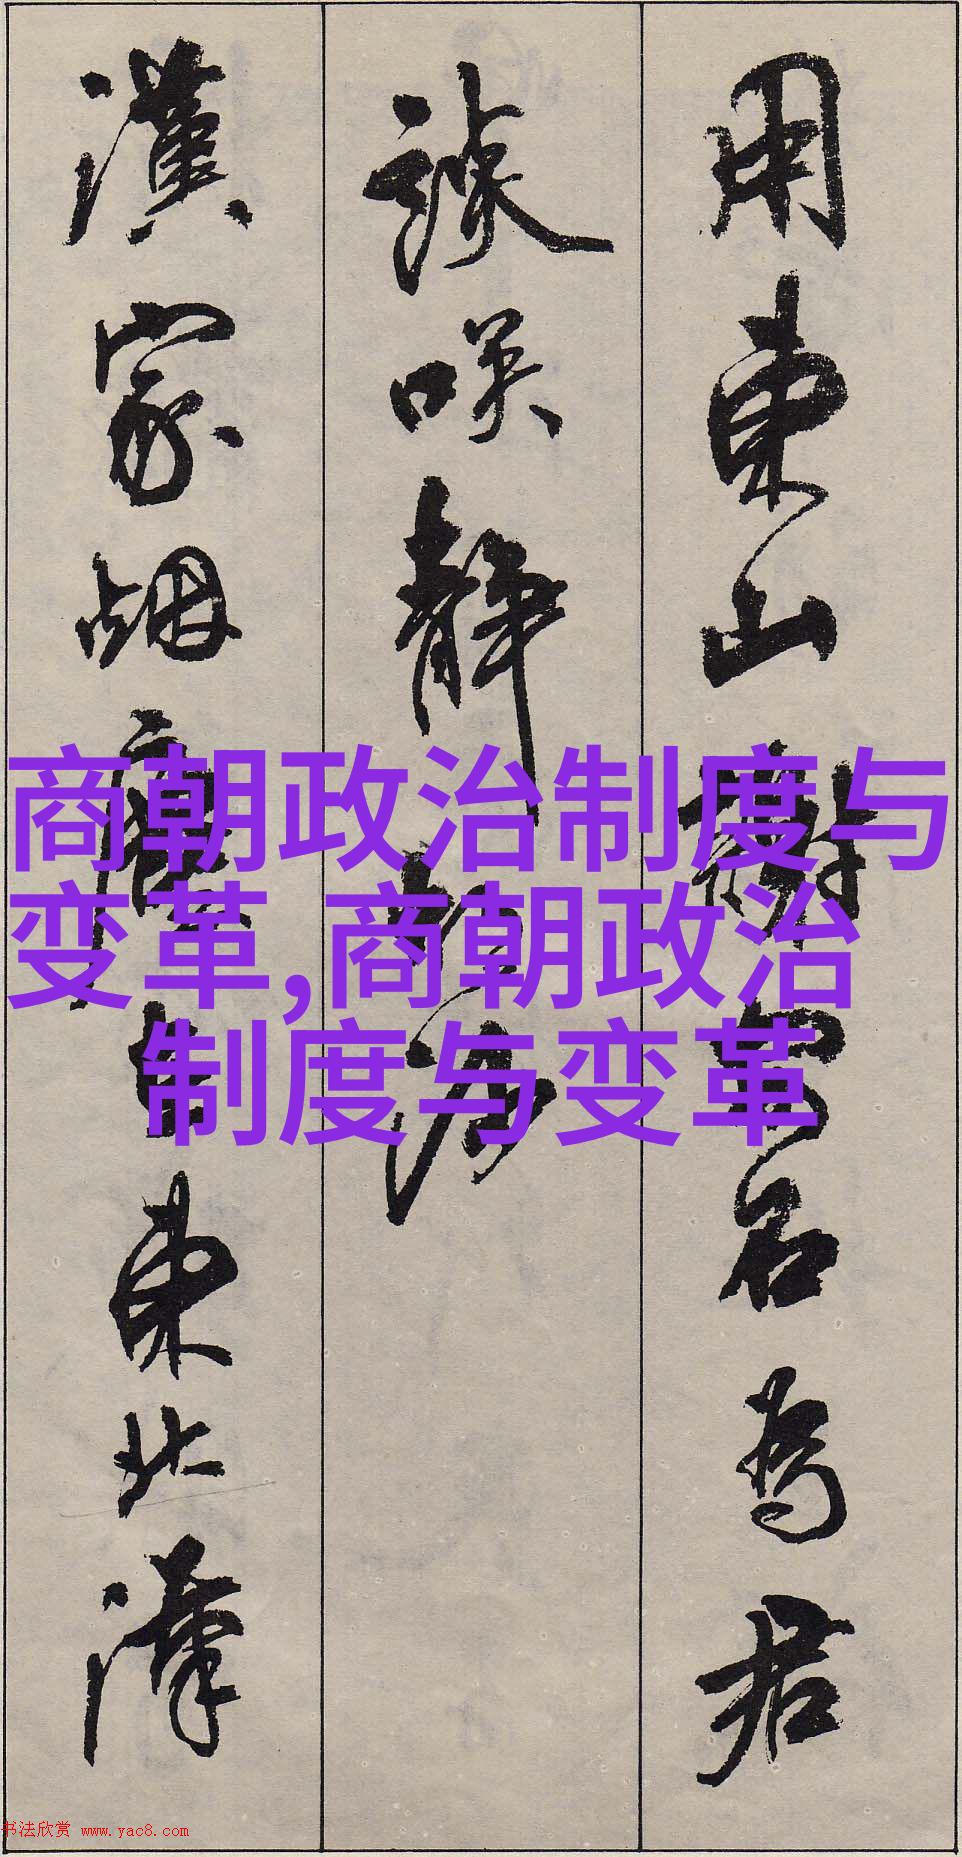 用東山謝安石為君
談咲静胡沙
漢家烟塵東北漢
商朝政治制度与
变革,商朝政治
制度与变革
书法欣赏 www.yac8.com